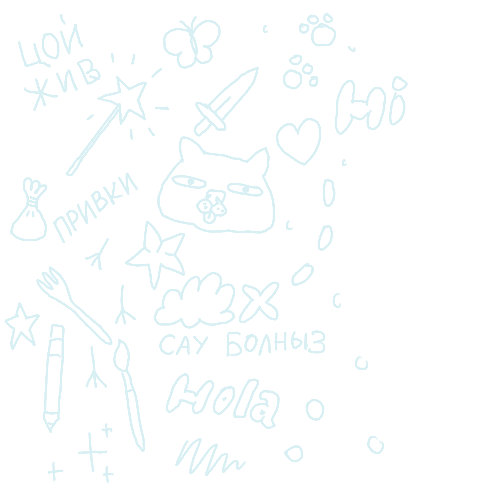 ЦОЙ
ЖИВ
Hi
ПРИВКИ
САУ БОЛНЫЗ
Hola